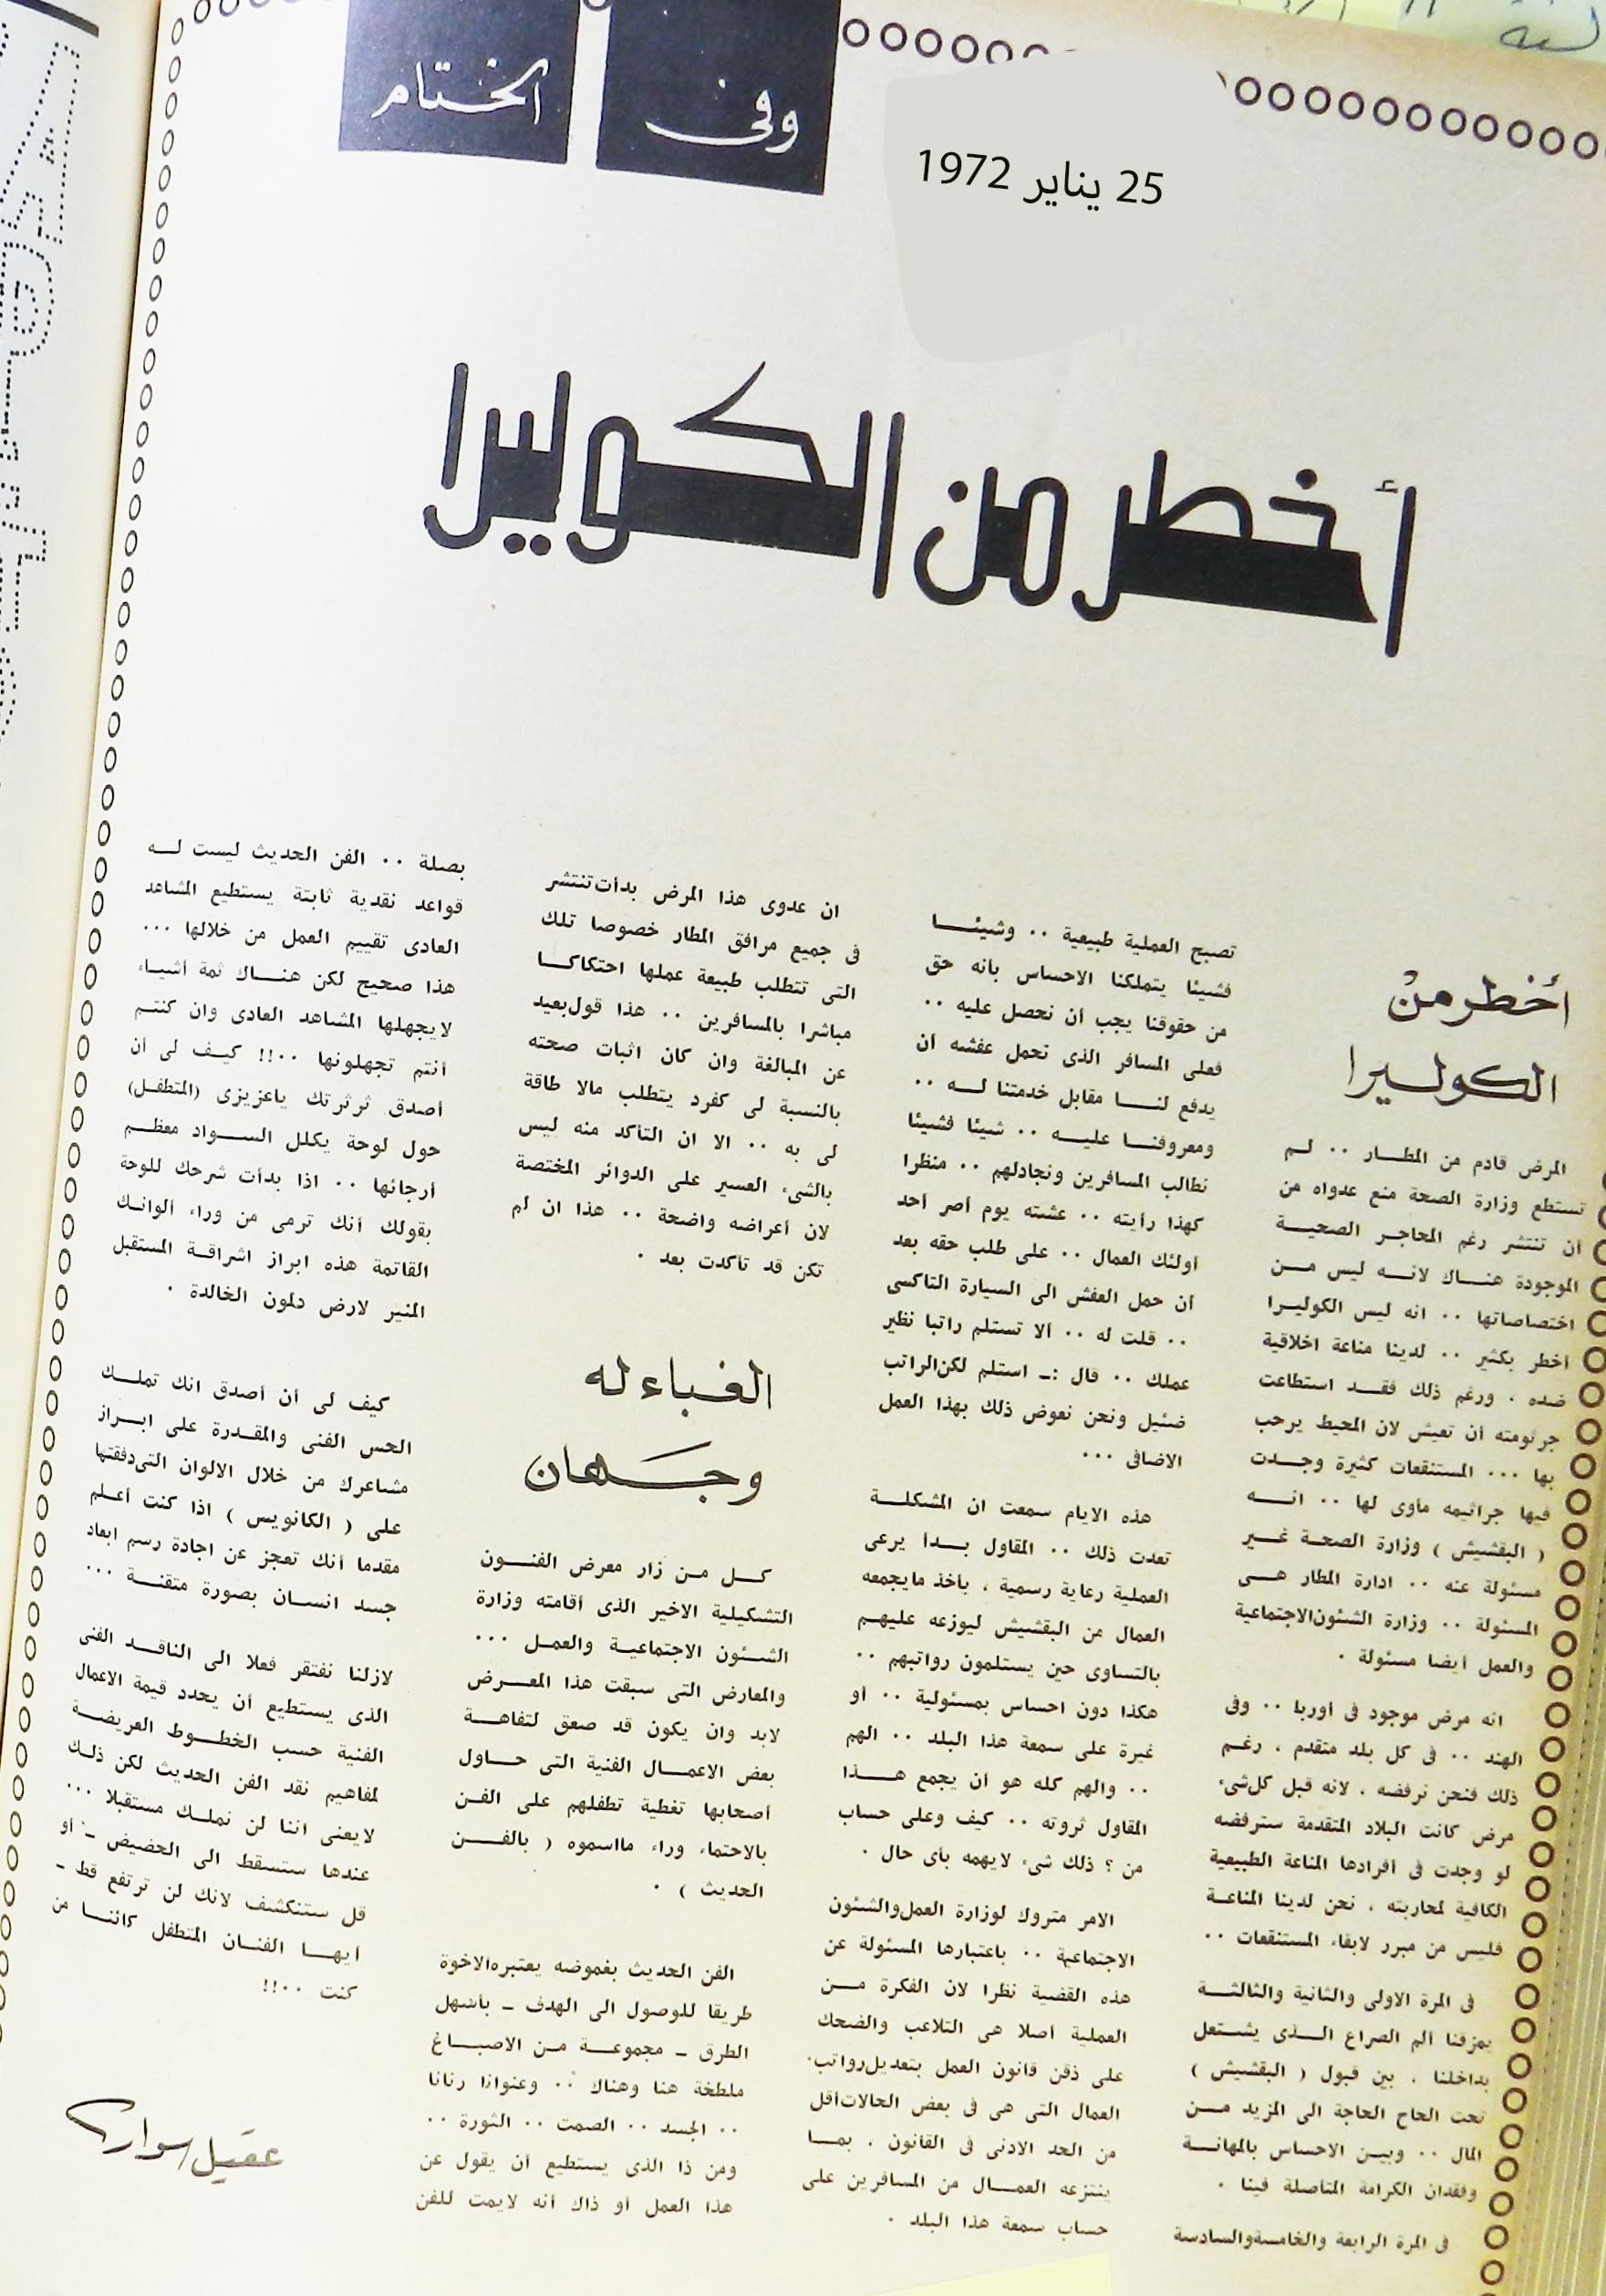 وفى
الختام
25 يناير 1972
أخطر من الكوليرا
أخطر من
الكوليرا
المرض قادم من المطار .. لم
تستطع وزارة الصحة منع عدواه من
أن تنتشر رغم المحاجر الصحية
الموجودة هناك لانه ليس من
اختصاصاتها .. انه ليس الكوليرا
أخطر بكثير .. لدينا مناعة اخلاقية
ضده . ورغم ذلك فقد استطاعت
جرثومته أن تعيش لان المحيط يرحب
بها ... المستنقعات كثيرة وجدت
فيها جراثيمه مأوى لها .. انه
( البقشيش ) وزارة الصحة غير
مسئولة عنه .. ادارة المطار هى
المسئولة .. وزارة الشئون الاجتماعية
والعمل أيضا مسئولة .
انه مرض موجود فى أوربا .. وفى
الهند .. فى كل بلد متقدم . رغم
ذلك فنحن نرفضه . لانه قبل كل شىء
مرض كانت البلاد المتقدمة سترفضه
لو وجدت فى أفرادها المناعة الطبيعية
الكافية لمحاربته . نحن لدينا المناعة
فليس من مبرر لابقاء المستنقعات ..
فى المرة الاولى والثانية والثالثة
يمزقنا ألم الصراع الذى يشتعل
بداخلنا . بين قبول ( البقشيش )
تحت الحاح الحاجة الى المزيد من
المال .. وبين الاحساس بالمهانة
وفقدان الكرامة المتأصلة فينا .
فى المرة الرابعة والخامسة والسادسة
تصبح العملية طبيعية .. وشيئا
فشيئا يتملكنا الاحساس بأنه حق
من حقوقنا يجب أن نحصل عليه ..
فعلى المسافر الذى نحمل عفشه أن
يدفع لنا مقابل خدمتنا له ..
ومعروفنا عليه .. شيئا فشيئا
نطالب المسافرين ونجادلهم .. منظرا
كهذا رأيته .. عشته يوم أصر أحد
أولئك العمال .. على طلب حقه بعد
أن حمل العفش الى السيارة التاكسى
.. قلت له .. ألا تستلم راتبا نظير
عملك .. قال :ـ استلم لكن الراتب
ضئيل ونحن نعوض ذلك بهذا العمل
الاضافى ...
هذه الايام سمعت ان المشكلة
تعدت ذلك .. المقاول بدأ يرعى
العملية رعاية رسمية . يأخذ ما يجمعه
العمال من البقشيش ليوزعه عليهم
بالتساوى حين يستلمون رواتبهم ..
هكذا دون احساس بمسئولية .. أو
غيرة على سمعة هذا البلد .. الهم
.. والهم كله هو أن يجمع هذا
المقاول ثروته .. كيف وعلى حساب
من ؟ ذلك شىء لا يهمه بأى حال .
الامر متروك لوزارة العمل والشئون
الاجتماعية .. باعتبارها المسئولة عن
هذه القضية نظرا لان الفكرة من
العملية أصلا هى التلاعب والضحك
على ذقن قانون العمل بتعديل رواتب
العمال التى هى فى بعض الحالات أقل
من الحد الادنى فى القانون . بما
ينتزعه العمال من المسافرين على
حساب سمعة هذا البلد .
ان عدوى هذا المرض بدأت تنتشر
فى جميع مرافق المطار خصوصا تلك
التى تتطلب طبيعة عملها احتكاكا
مباشرا بالمسافرين .. هذا قول بعيد
عن المبالغة وان كان اثبات صحته
بالنسبة لى كفرد يتطلب مالا طاقة
لى به .. الا ان التأكد منه ليس
بالشىء العسير على الدوائر المختصة
لان أعراضه واضحة .. هذا ان لم
تكن قد تأكدت بعد .
الغباء له
وجهان
كل من زار معرض الفنون
التشكيلية الاخير الذى أقامته وزارة
الشئون الاجتماعية والعمل ...
والمعارض التى سبقت هذا المعرض
لابد وان يكون قد صعق لتفاهة
بعض الاعمال الفنية التى حاول
أصحابها تغطية تطفلهم على الفن
بالاحتماء وراء ما اسموه ( بالفن
الحديث ) .
الفن الحديث بغموضه يعتبره الاخوة
طريقا للوصول الى الهدف ـ بأسهل
الطرق ـ مجموعة من الاصباغ
ملطخة هنا وهناك .. وعنوانا رنانا
.. الجسد .. الصمت .. الثورة ..
ومن ذا الذى يستطيع أن يقول عن
هذا العمل أو ذاك أنه لايمت للفن
بصلة .. الفن الحديث ليست له
قواعد نقدية ثابتة يستطيع المشاهد
العادى تقييم العمل من خلالها ...
هذا صحيح لكن هناك ثمة أشياء
لايجهلها المشاهد العادى وان كنتم
أنتم تجهلونها ..!! كيف لى أن
أصدق ثرثرتك ياعزيزى (المتطفل)
حول لوحة يكلل السواد معظم
أرجائها .. اذا بدأت شرحك للوحة
بقولك أنك ترمى من وراء ألوانك
القاتمة هذه ابراز اشراقة المستقبل
المنير لارض دلمون الخالدة .
كيف لى أن أصدق انك تملك
الحس الفنى والمقدرة على ابراز
مشاعرك من خلال الالوان التى دفقتها
على ( الكانويس ) اذا كنت أعلم
مقدما أنك تعجز عن اجادة رسم ابعاد
جسد انسان بصورة متقنة ...
لازلنا نفتقر فعلا الى الناقد الفنى
الذى يستطيع أن يحدد قيمة الاعمال
الفنية حسب الخطوط العريضة
لمفاهيم نقد الفن الحديث لكن ذلك
لايعنى اننا لن نملك مستقبلا ...
عندها ستسقط الى الحضيض ـ أو
قل ستنكشف لانك لن ترتفع قط ـ
أيها الفنان المتطفل كائنا من
كنت ..!!
عقيل سوار